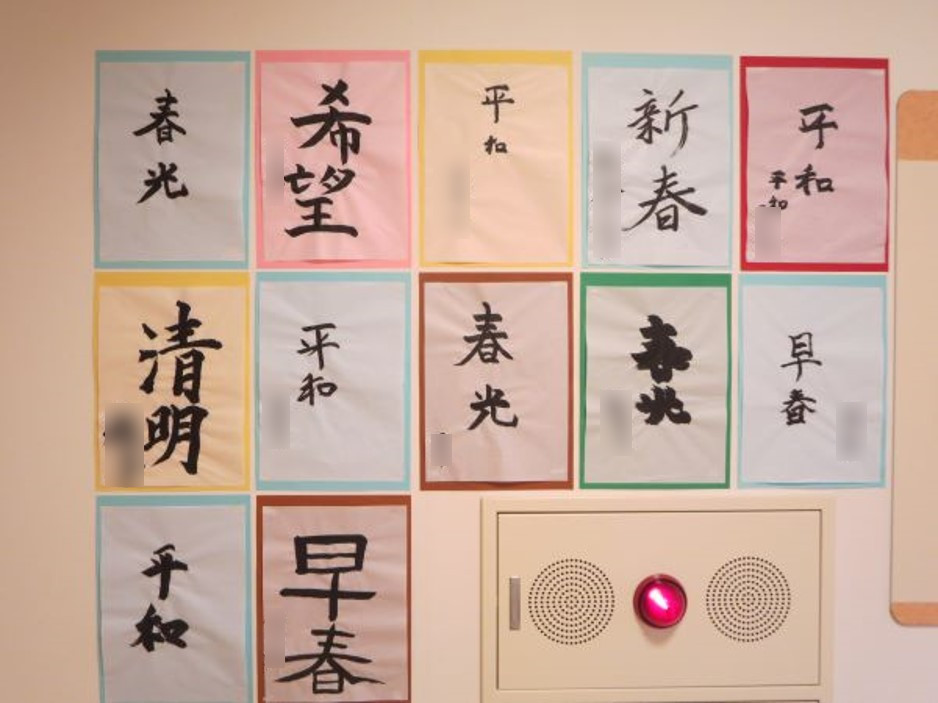 春光
希望
平和
新春
平和
平和
清明
平和
春光
春光
早春
平和
早春